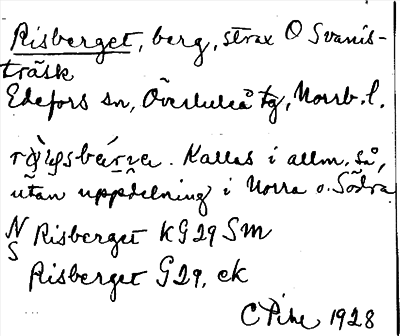 Risberget, berg, strax O Svanis-
träsk
Edefors sn, Överluleå tg, Norrb. l.
Kallas i allm. så,
utan uppdelning i Norra o. Södra
N Risberget kG29 Sm
S Risberget G29, ek
C Pihl 1928